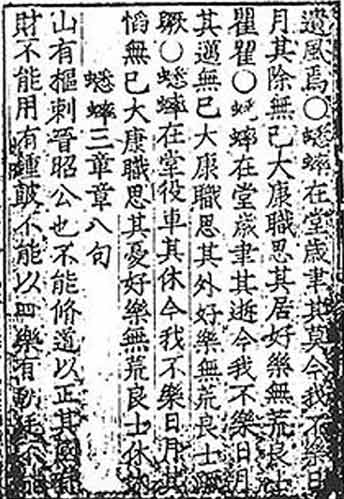 遺風焉○蟋蟀在堂歲聿其莫今我不樂日
月其除無已大康職思其居好樂無荒良士
瞿瞿○蟋蟀在堂歲聿其逝今我不樂日月
其邁無已大康職思其外好樂無荒良士
蹶○蟋蟀在堂役車其休今我不樂日月其
慆無已大康職思其憂好樂無荒良士休
蟋蟀三章章八句
山有樞刺晉昭公也不能脩道以正其國有
財不能用有鍾鼓不能以自樂有朝廷不能